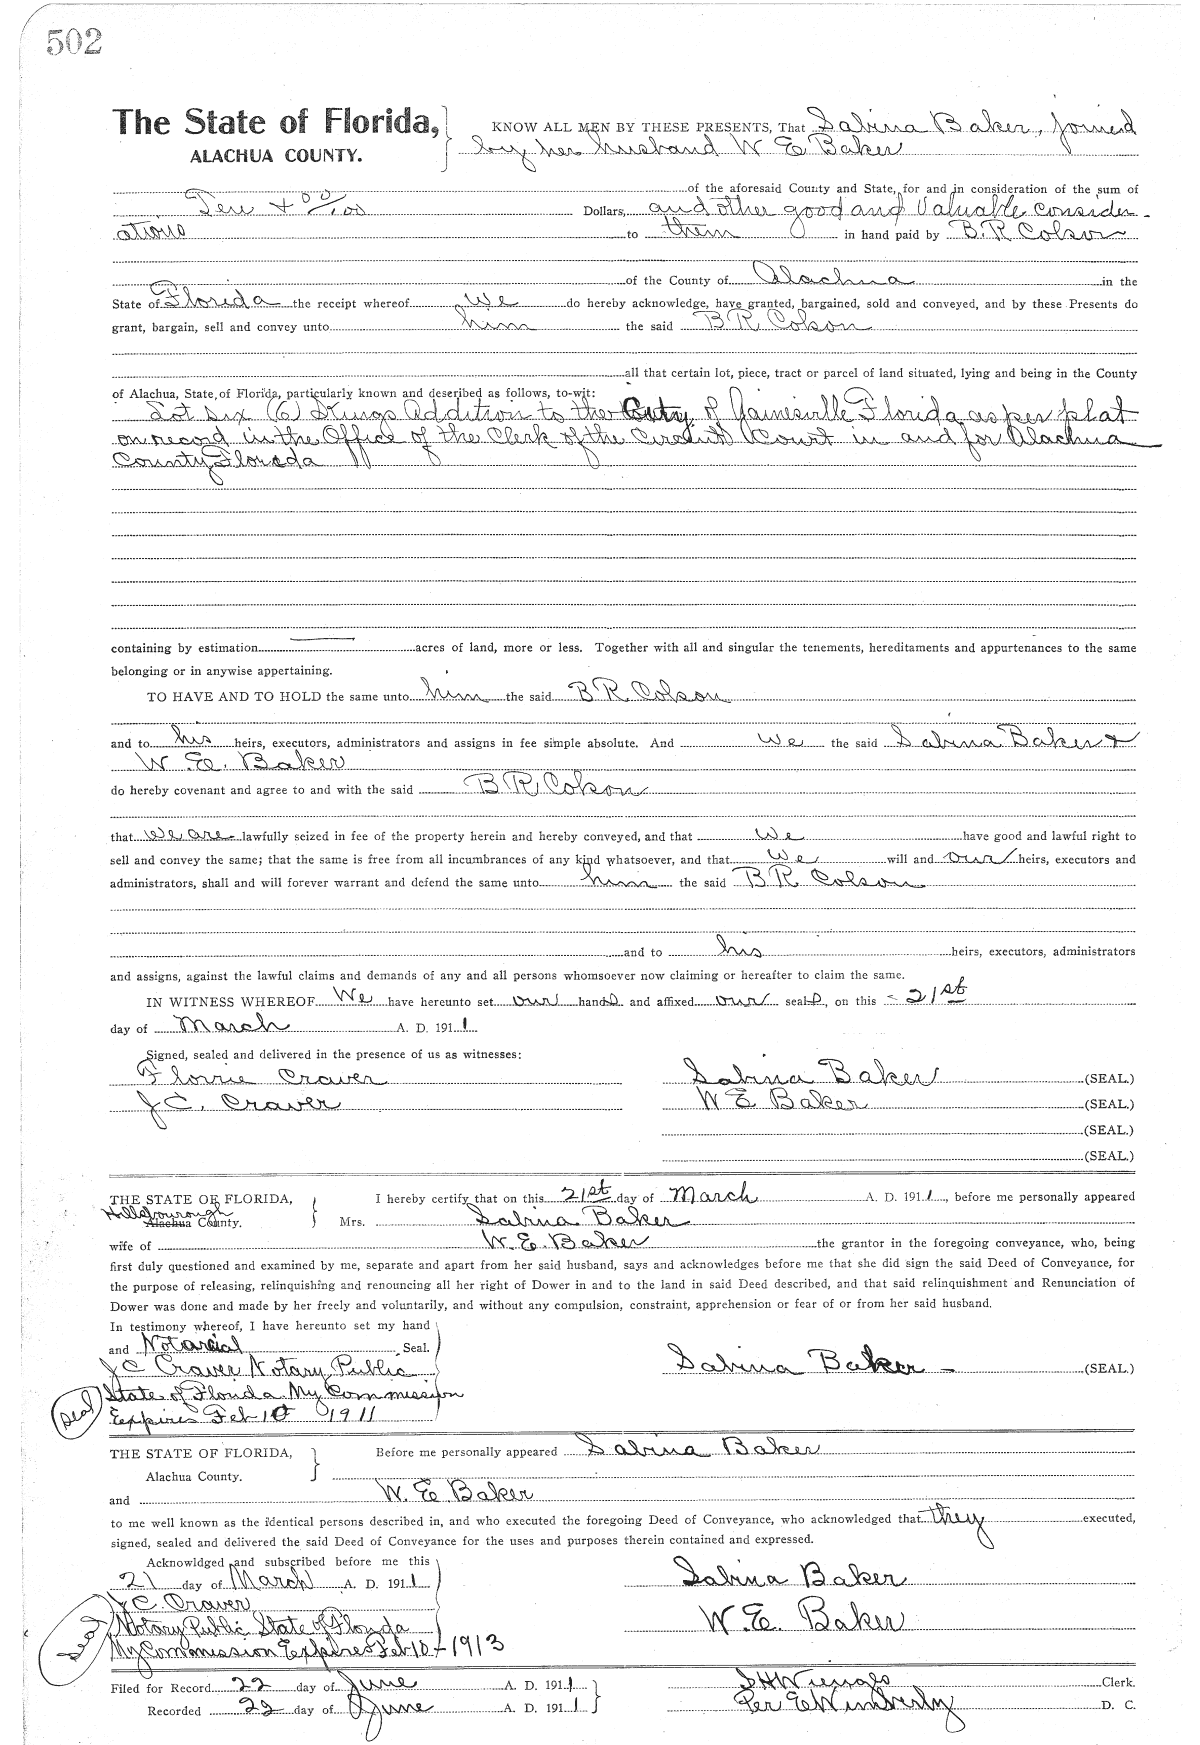 502
The State of Florida, KNOW ALL MEN BY THESE PRESENTS, That Sabina Baker, joined
ALACHUA COUNTY. by her husband W E Baker
of the aforesaid County and State, for and in consideration of the sum of
Ten & 00/100 Dollars, and other good and Valuable consider-
ations to them in hand paid by B. R. Colson
of the County of Alachua in the
State of Florida the receipt whereof we do hereby acknowledge, have granted, bargained, sold and conveyed, and by these Presents do
grant, bargain, sell and convey unto him the said B R Colson
all that certain lot, piece, tract or parcel of land situated, lying and being in the County
of Alachua, State of Florida, particularly known and desribed as follows, to-wit:
Lot six (6) Kings Addition to the City of Gainesville Florida as per plat
on record in the Office of the Clerk of the Circuit Court in and for Alachua
County Florida
containing by estimation acres of land, more or less. Together with all and singular the tenements, hereditaments and appurtenances to the same
belonging or in anywise appertaining.
TO HAVE AND TO HOLD the same unto him the said B R Colson
and to his heirs, executors, administrators and assigns in fee simple absolute. And we the said Sabina Baker &
W. E. Baker
do hereby covenant and agree to and with the said B R Colson
that we are lawfully seized in fee of the property herein and hereby conveyed, and that we have good and lawful right to
sell and convey the same; that the same is free from all incumbrances of any kind whatsoever, and that we will and our heirs, executors and
administrators, shall and will forever warrant and defend the same unto him the said B R Colson
and to his heirs, executors, administrators
and assigns, against the lawful claims and demands of any and all persons whomsoever now claiming or hereafter to claim the same.
IN WITNESS WHEREOF We have hereunto set our hands and affixed our seals, on this - 21st
day of March A. D. 1911
Signed, sealed and delivered in the presence of us as witnesses:
Florrie Craver Sabina Baker (SEAL.)
J C. Craver W E Baker (SEAL.)
(SEAL.)
(SEAL.)
THE STATE OF FLORIDA, I hereby certify that on this 21st day of March A. D. 1911, before me personally appeared
Hillsborough
Alachua County. Mrs. Sabina Baker
wife of W. E. Baker the grantor in the foregoing conveyance, who, being
first duly questioned and examined by me, separate and apart from her said husband, says and acknowledges before me that she did sign the said Deed of Conveyance, for
the purpose of releasing, relinquishing and renouncing all her right of Dower in and to the land in said Deed described, and that said relinquishment and Renunciation of
Dower was done and made by her freely and voluntarily, and without any compulsion, constraint, apprehension or fear of or from her said husband.
In testimony whereof, I have hereunto set my hand
and Notarial Seal.
J C Craver Notary Public Sabina Baker - (SEAL.)
Seal State of Florida My Commission
Expires Feb 10 1911
THE STATE OF FLORIDA, Before me personally appeared Sabina Baker
Alachua County.
and W. E Baker
to me well known as the identical persons described in, and who executed the foregoing Deed of Conveyance, who acknowledged that they executed,
signed, sealed and delivered the said Deed of Conveyance for the uses and purposes therein contained and expressed.
Acknowldged and subscribed before me this
21 day of March A. D. 1911 Sabina Baker
J C. Craver
Seal Notary Public State of Florida W. E. Baker
My Commission Expires Feb 10 - 1913
Filed for Record 22 day of June A. D. 1911 Clerk.
Recorded 22 day of June A. D. 1911 Per E Wimberly D. C.